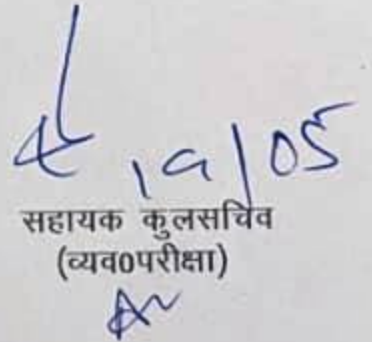 19/05
सहायक कुलसचिव
(व्यव०परीक्षा)